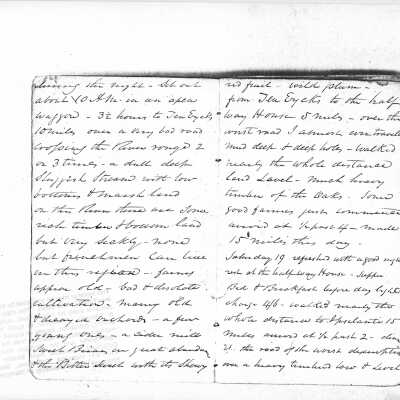 during the night - Set out
about 10 A.M. in an open
waggon - 3½ hours to Ten Eycks
10 miles over a very bad road
crossing the River rouge 2
or 3 times - a dull deep
sluggish stream with low
bottoms & marsh land
on this River there are some
rich timber & bottom land
but very sickly - none
but frenchmen can live
in this region - farms
appear old - bad & desolate
cultivation - many old
& decayed orchards - a few
young ones - a cider mill
Sweet Briar in great abundance
& the Bitter Sweet with its showy
red fruit - wild plum -
from Ten Eycks to the half
way House 5 miles - over the
worst road I almost ever
mud deep & deep holes - walked
nearly the whole distance
land Level - Much heavy
timber of the Oaks. Some
good farms just commenced
arrived at ½ past 4 - made
15 miles this day.
Saturday 19 refreshed with a good night
rest at the half way House - Supper
Bed & Breakfast before day light
charge 4/6 - walked nearly the
whole distance to Ypsilanti 15
miles arrived at ½ past 2 -
the road of the worst description
over a heavy timbered low & level